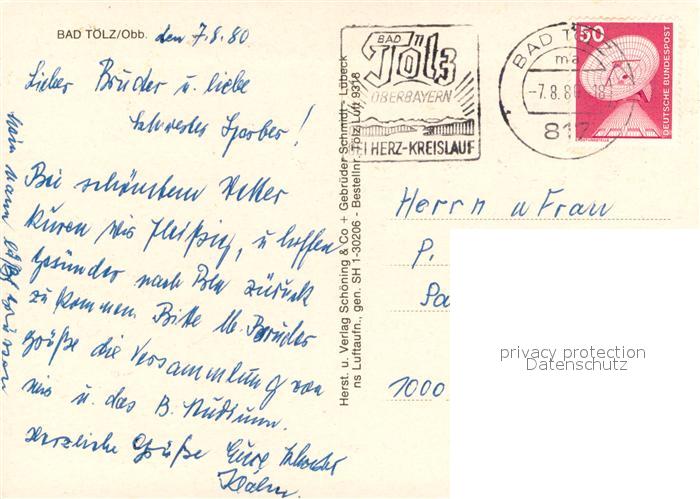 BAD TÖLZ/Obb. den 7.8.80
Lieber Bruder u. liebe
Schwester Gerber!
Bei schönstem Wetter
kuren wir fleißig, u hoffen
gesünder nach Bln zurück
zu kommen. Bitte lb. Bruder
grüße die Versammlung von
mir u. das B. Studium.
Herzliche Grüße Eure Schwester
Mein Mann läßt grüßen
Herst. u. Verlag Schöning & Co + Gebrüder Schmidt - Lübeck
ns Luftaufn., gen. SH 1-30206 - Bestellnr. Tölz Luft 9318
BAD
Tölz
OBERBAYERN
BEI HERZ-KREISLAUF
BAD TÖL
ma
-7.8.8 -18
817
50
DEUTSCHE BUNDESPOST
Herrn u Frau
P.
1000
privacy protection
Datenschutz